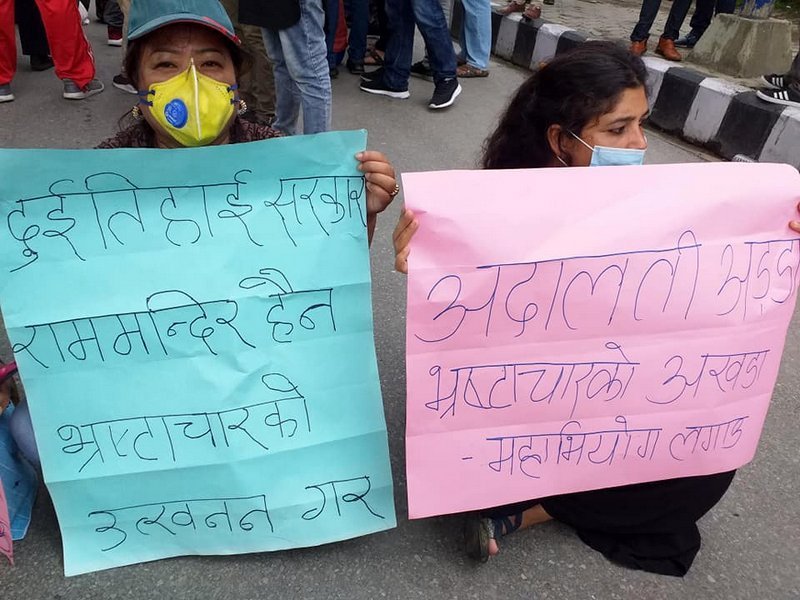 दुई तिहाई सरकार
राममन्दिर हैन
भ्रष्टाचारको
उत्खनन् गर
अदालती अड्डा
भ्रष्टाचारको अखडा
- महाभियोग लगाउ